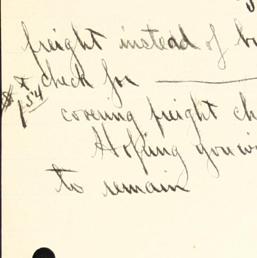 freight instead of
check for
$1.54
covering freight
Hoping you
to remain